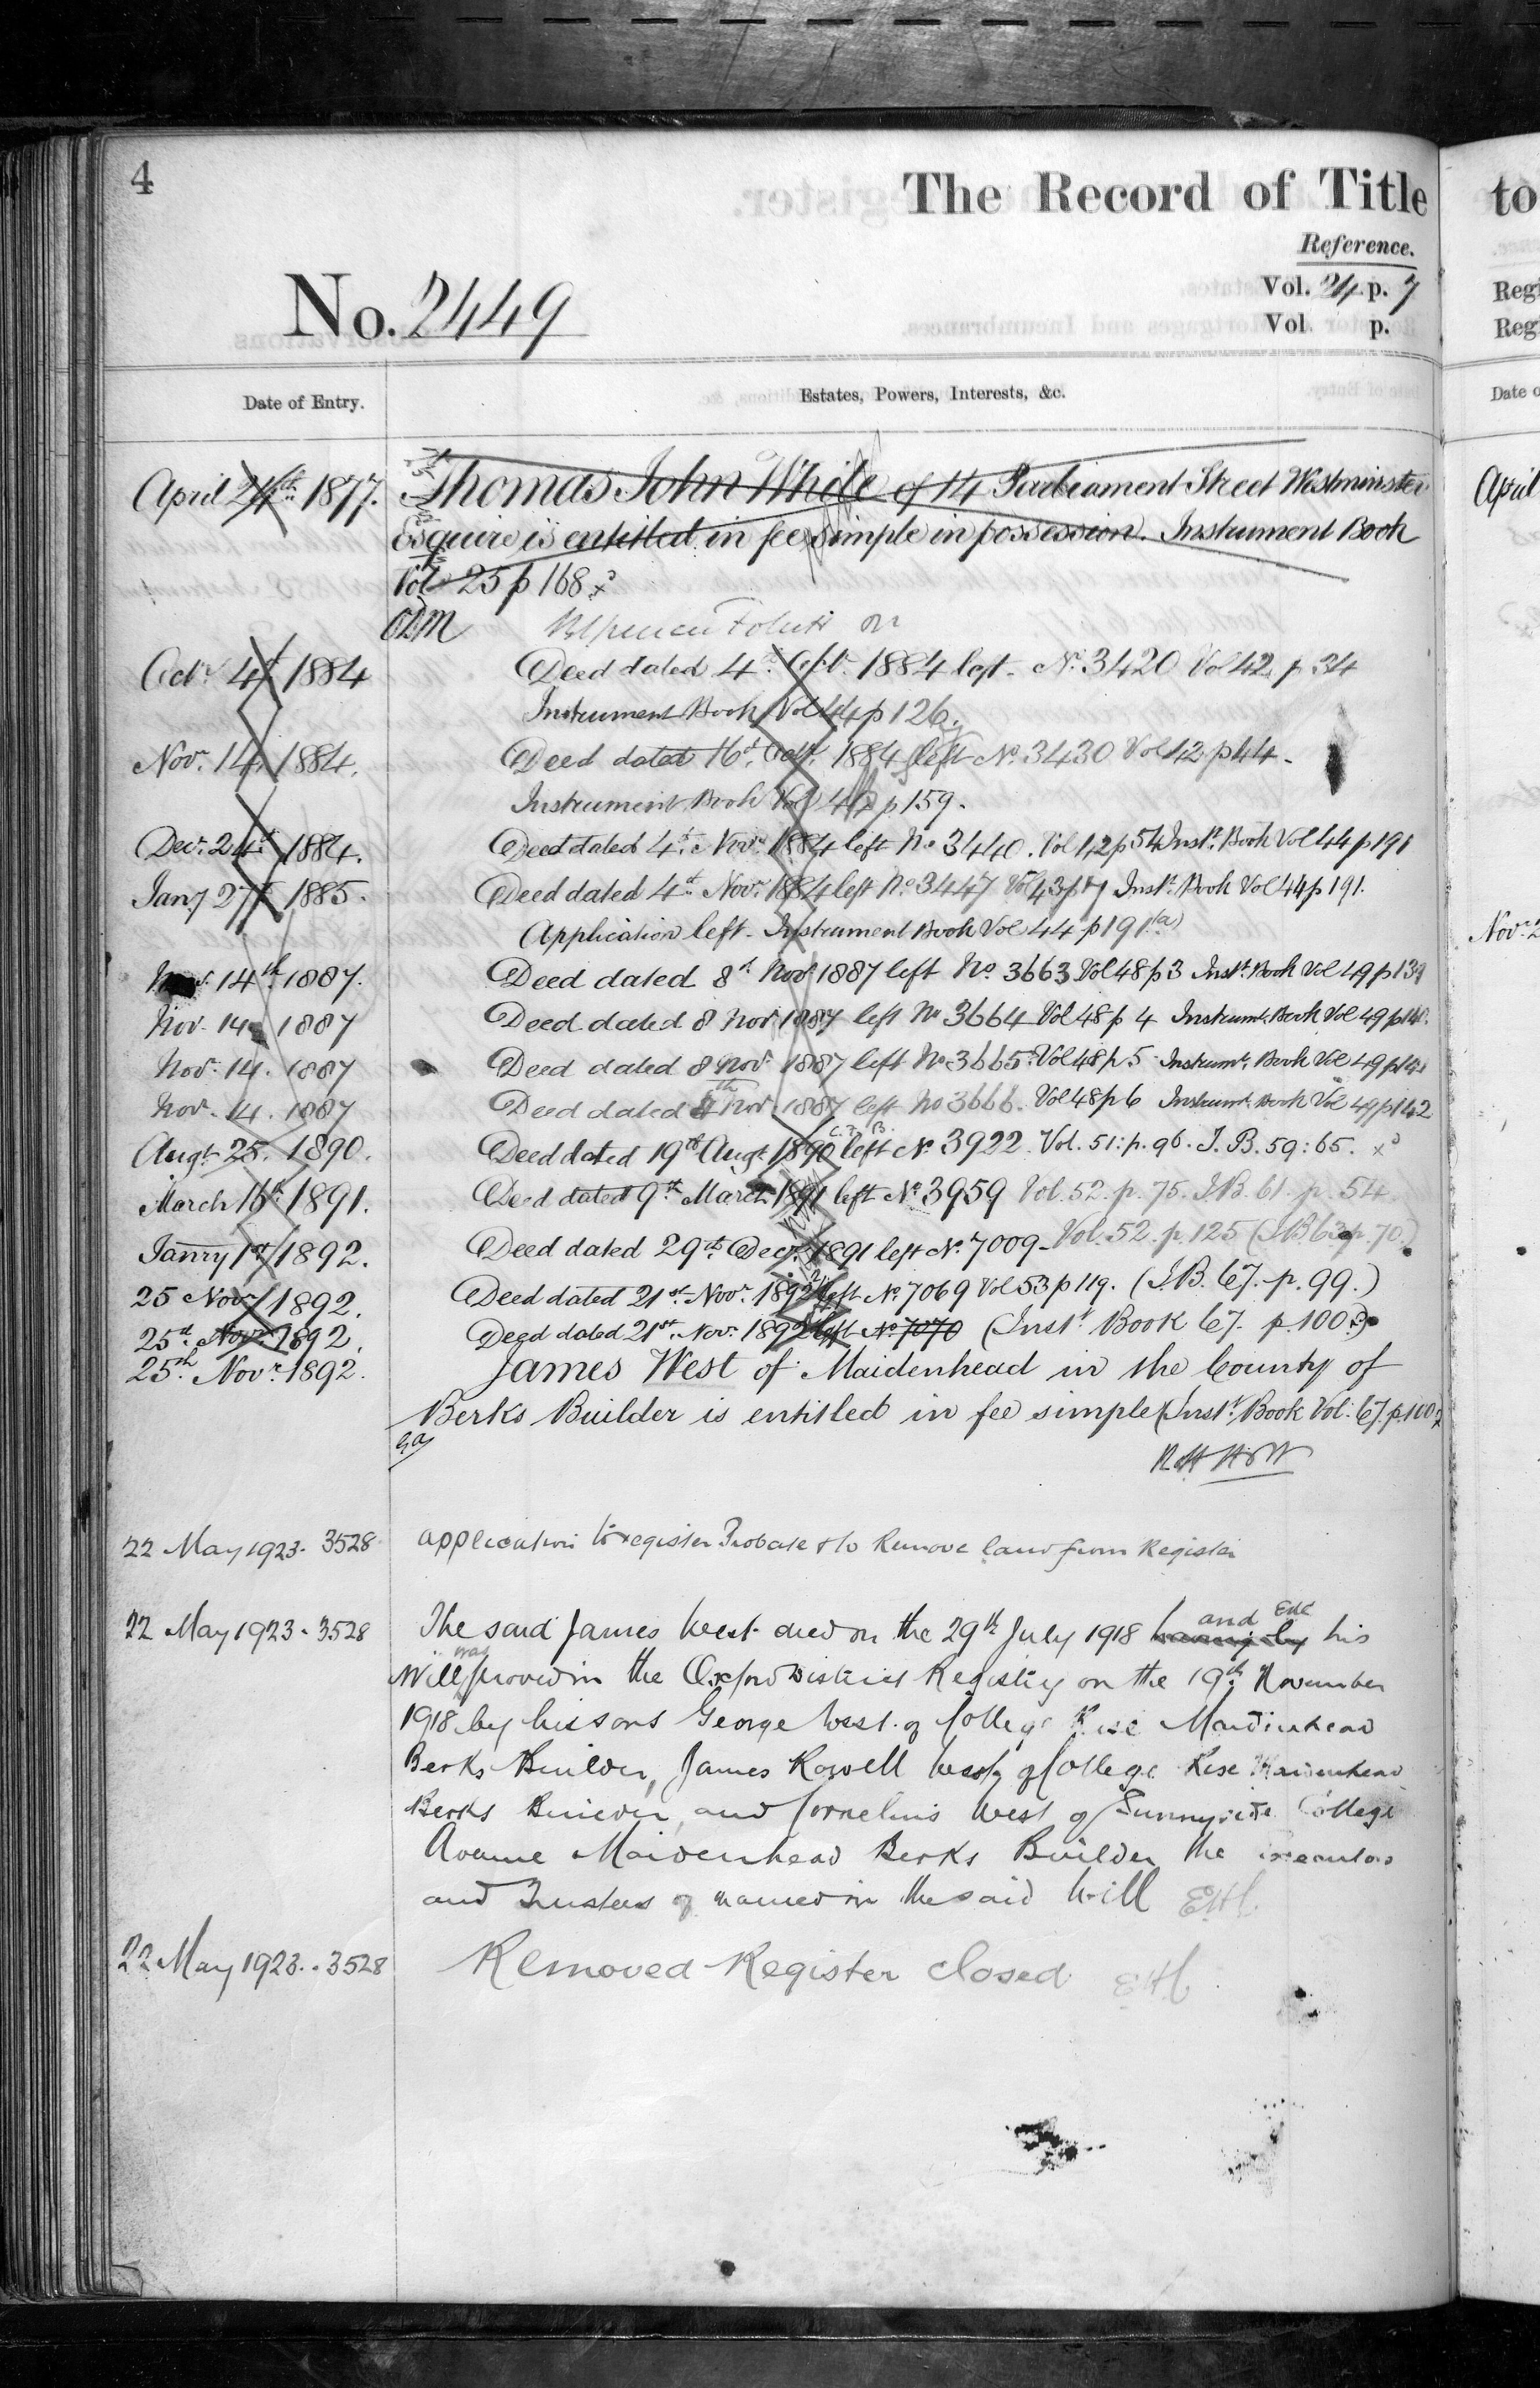 4
The Record of Title
Reference.
No. 2449
Vol. 24 p. 7
Vol. p.
Date of Entry.
Estates, Powers, Interests, &c.
April 24th 1877. Thomas John White of 14 Parliament Street Westminster
Esquire is entitled in fee simple in possession. Instrument Book
Vol 25 p 168
Octr 4th 1884 Deed dated 4th Septr 1884 left No. 3420 Vol 42 p 34
Instrument Book Vol 44 p 126.
Novr. 14 1884. Deed dated 16th Octr. 1884 left No. 3430 Vol 42 p 44.
Instrument Book Vol 44 p 159.
Decr. 24th 1884. Deed dated 4th Novr. 1884 left No 3440. Vol 42 p 54 Inst. Book Vol 44 p 191
Jany 27 1885. Deed dated 4th Novr. 1884 left No 3447 Vol 43 p 7 Inst. Book Vol 44 p 191.
Application left. Instrument Book Vol 44 p 191 (a)
14th 1887. Deed dated 8th Novr 1887 left No. 3663 Vol 48 p 3 Inst. Book Vol 49 p 139
Nov. 14 1887 Deed dated 8 Novr 1887 left No 3664 Vol 48 p 4 Instrumt. Book Vol 49 p 140.
Nov. 14. 1887 Deed dated 8 Novr 1887 left No 3665. Vol 48 p. 5. Instrumt. Book Vol 49 p 141
Nov. 14. 1887 Deed dated 8th Novr 1887 left No 3666. Vol 48 p 6 Instrumt. Book Vol 49 p 142
Augt. 25. 1890. Deed dated 19th Augt 1890 left No 3922. Vol. 51: p. 96. I. B. 59: 65.
March 16th 1891. Deed dated 9th March 1891 left No 3959 Vol. 52. p. 75. I.B. 61. p. 54
Janry 1st 1892. Deed dated 29th Decr. 1891 left No. 7009. Vol. 52. p. 125 (I.B 63 p. 70.)
25 Novr 1892. Deed dated 21st Novr. 1892 left No. 7069 Vol 53 p 119. (I.B. 67. p. 99.)
25th Novr 1892. Deed dated 21st Novr. 1892 left No. 7070 (Inst. Book 67. p. 100.)
25th Novr. 1892. James West of Maidenhead in the County of
Berks Builder is entitled in fee simple (Inst. Book Vol. 67. p. 100
22 May 1923. 3528 application to register Probate & to Remove land from Register
and
22 May 1923. 3528 The said James West died on the 29th July 1918 having by his
was
Will proved in the Oxford District Registry on the 19th November
1918 by his sons George West of College Rise Maidenhead
Berks Builder, James Rowell West of College Rise Maidenhead
Berks Builder, and Cornelius West of Sunnyside College
Avenue Maidenhead Berks Builder the executors
and Trustees of named in the said Will
22 May 1923. 3528 Removed Register closed
to
Regi
Reg
Date o
April
Nov. 2